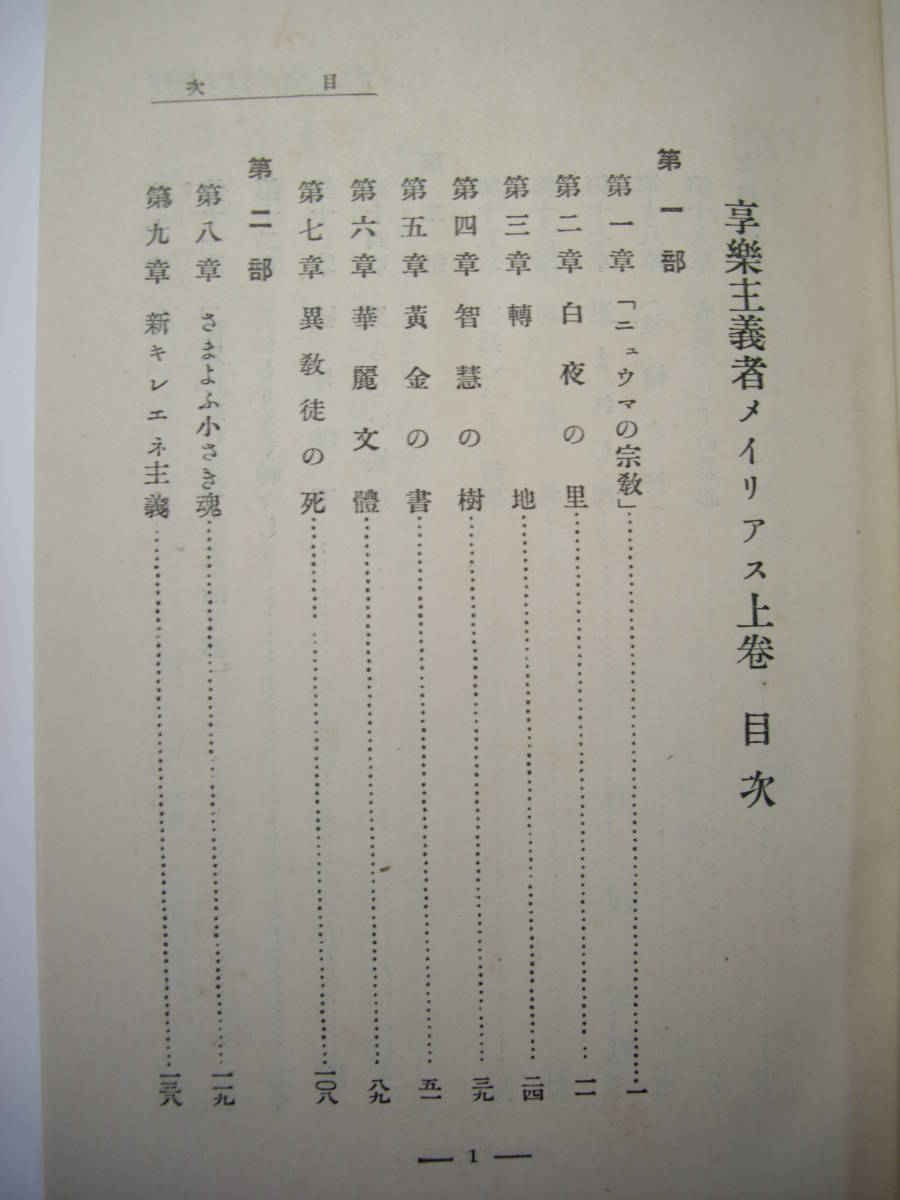 目次
享樂主義者メイリアス上卷 目次
第一部
第一章 「ニュウマの宗教」…………一
第二章 白夜の里…………一一
第三章 轉地…………二四
第四章 智慧の樹…………三九
第五章 黃金の書…………五一
第六章 華麗文體…………八九
第七章 異教徒の死…………一〇八
第二部
第八章 さまよふ小さき魂…………一一九
第九章 新キレエネ主義…………一三八
— 1 —